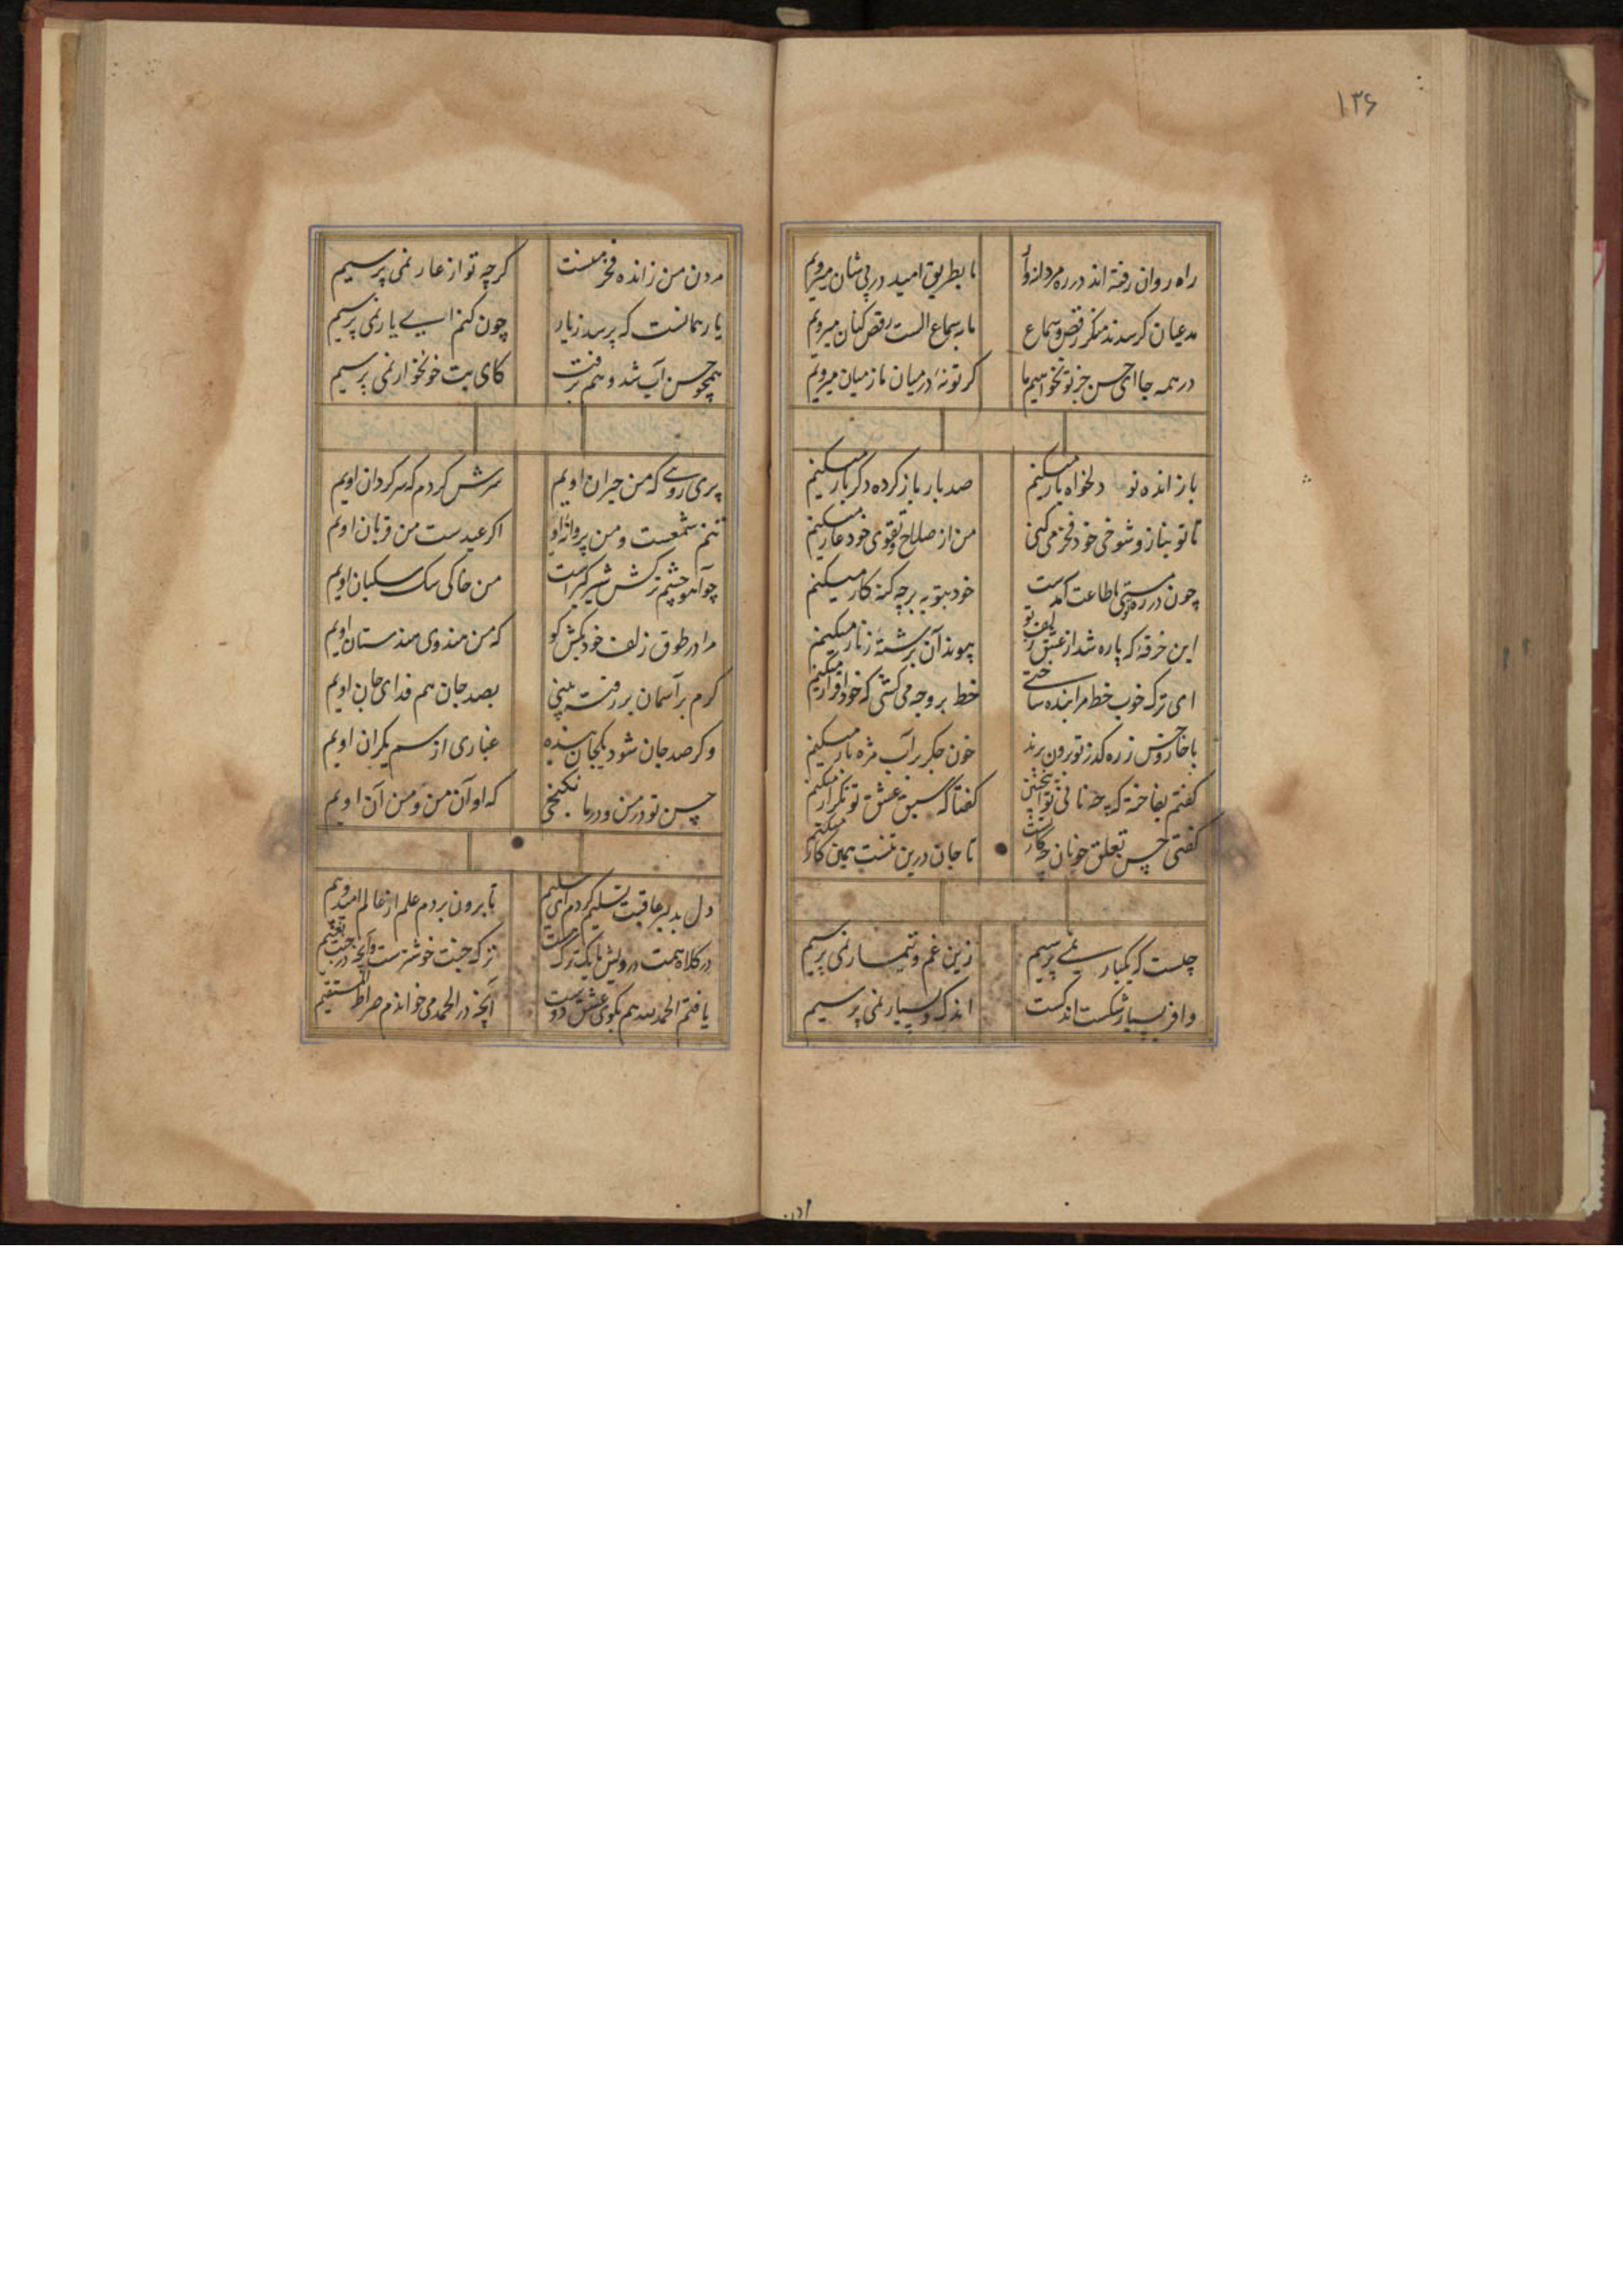 ۱۳۶
راه روان رفته اند در ره مردانه وار ما بطریق امید در پی شان میرویم
مدعیان کر سدند منکر رقص و سماع ما بسماع الست رقص کنان میرویم
در همه جا ای حسن جز تو نخواهیم ما کر تو نه در میان ما ز میان میرویم
باز اندٔه تو دلخواه بار میکنم صد بار باز کرده دکر بار میکنم
تا تو بناز و شوخی خود فخر می کنی من از صلاح و تقوی خود عار میکنم
چون در ره تو مستی طاعت آمدست خود بتوبه برچه کنه کار میکنم
این خرقه که پاره شد از عشق زلف تو پیوند آن برشتهٔ زنار میکنم
ای ترک خوب خط مرا بنده ساختی خط بر وجه می کشی که خود اقرار میکنم
با خار و خس ز ره کذر تو برون برند خون جکر بر آب مژه بار میکنم
کفتم بفاخته که چه نافی تو اینچنین کفتا که سبق عشق تو تکرار میکنم
کفتی حسن تعلق خوبان چه کارتست تا جان درین تنست همین کار میکنم
چلست که یکبار نمی پرسیم زین غم و تیمار نمی پرسیم
وافر بسیار شکست اندکست اندک و بسیار نمی پرسیم
مردن من زانده فخر منست کرچه تو از عار نمی پرسیم
یار همانست که پرسد زیار چون کنم ای یار نمی پرسیم
همچو حسن آب شد و هم برفت کای بت خونخوار نمی پرسیم
پری رویی که من حیران اویم سرش کردم که سرکردان اویم
تنم شمعست و من پروانهٔ او اکر عیدست من قربان اویم
چو آهو چشم ترکش شیر کیراست من خاکی سک سکبان اویم
مرا در طوق زلف خود بکش کو که من هندوی هندستان اویم
کرم بر آسمان بر رفته بینی غباری از سم یکران اویم
وکر صد جان شود یکجان بنده بصد جان هم فدای جان اویم
حسن تو در من و در ما نکنجی که او آن من و من آن اویم
دل بدلبر عاقبت تسلیم کردم ای سلیم تا برون بردم علم از عالم امید و بیم
در کلاه همت درویش ما یک ترک هست ترک جنت خوشترست وآنچه در جنت نعیم
یافتم الحمدلله هم بکوی عشق دوست آنچه در الحمد می خواندم صراط المستقیم